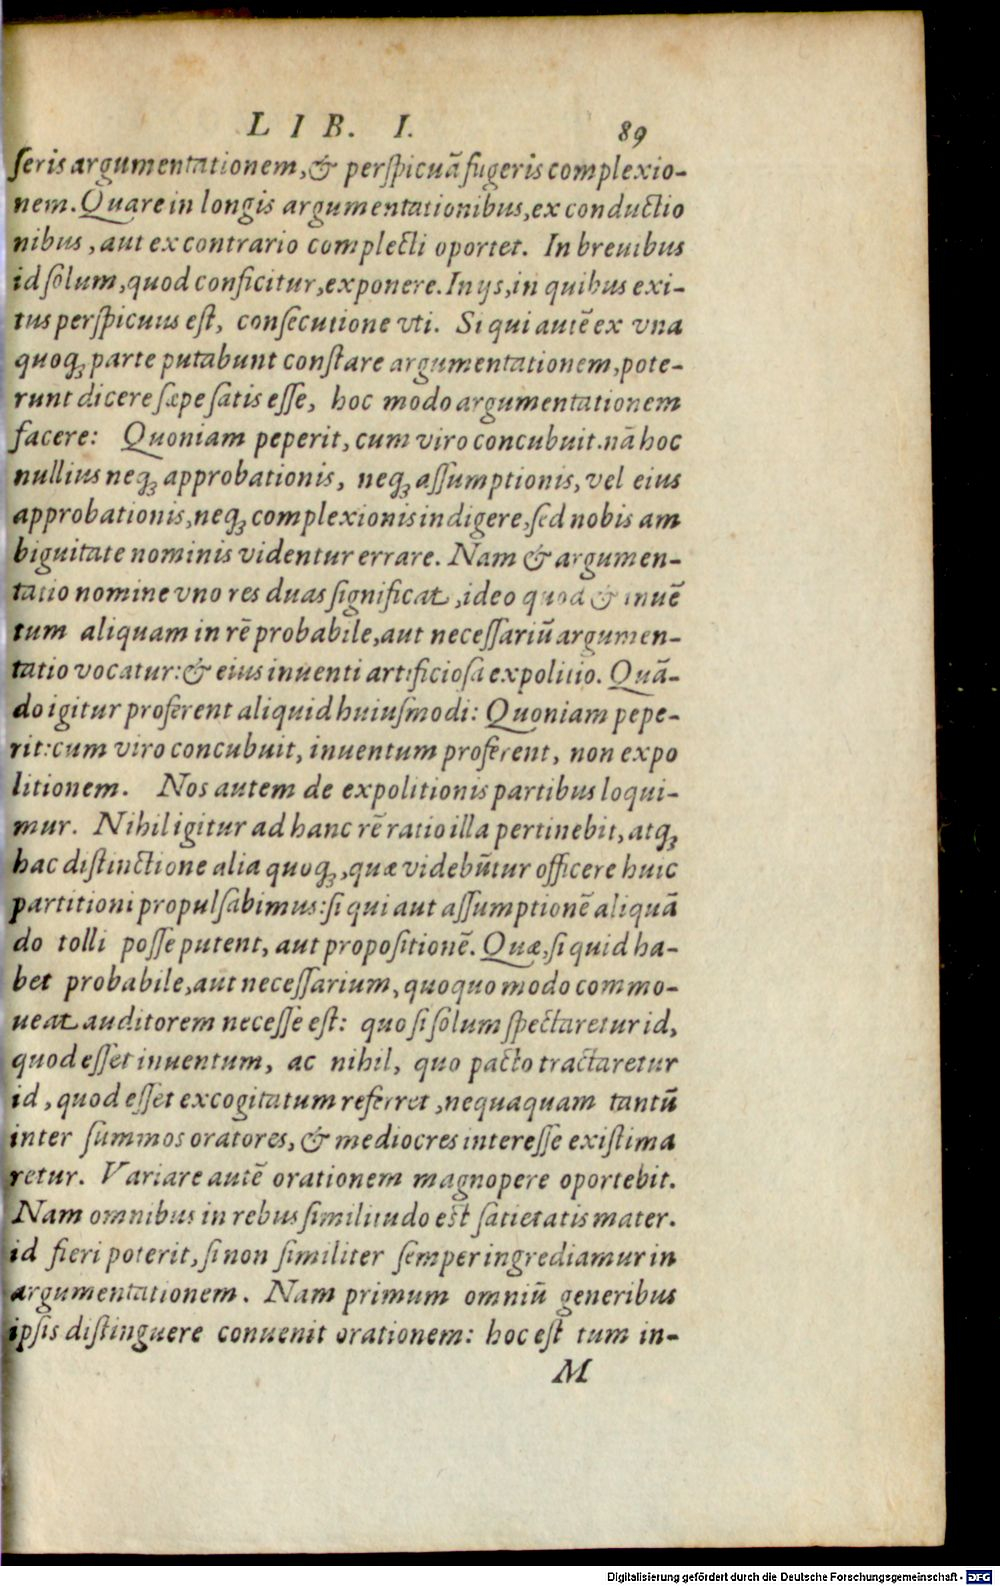 LIB. I. 89
ſeris argumentationem, & perſpicuā fugeris complexio-
nem. Quare in longis argumentationibus, ex conductio
nibus, aut ex contrario complecti oportet. In breuibus
id ſolum, quod conficitur, exponere. In ijs, in quibus exi-
tus perſpicuus eſt, conſecutione vti. Si qui autē ex vna
quoq; parte putabunt conſtare argumentationem, pote-
runt dicere ſæpe ſatis eſſe, hoc modo argumentationem
facere: Quoniam peperit, cum viro concubuit. nā hoc
nullius neq; approbationis, neq; aſſumptionis, vel eius
approbationis, neq; complexionis indigere, ſed nobis am
biguitate nominis videntur errare. Nam & argumen-
tatio nomine vno res duas ſignificat, ideo quod & inuē
tum aliquam in rē probabile, aut neceſſariū argumen-
tatio vocatur: & eius inuenti artificioſa expolitio. Quā-
do igitur proferent aliquid huiuſmodi: Quoniam pepe-
rit: cum viro concubuit, inuentum proferent, non expo
litionem. Nos autem de expolitionis partibus loqui-
mur. Nihil igitur ad hanc rē ratio illa pertinebit, atq;
hac diſtinctione alia quoq;, quæ videbūtur officere huic
partitioni propulſabimus: ſi qui aut aſſumptionē aliquā
do tolli poſſe putent, aut propoſitionē. Quæ, ſi quid ha-
bet probabile, aut neceſſarium, quoquo modo commo-
ueat auditorem neceſſe eſt: quo ſi ſolum ſpectaretur id,
quod eſſet inuentum, ac nihil, quo pacto tractaretur
id, quod eſſet excogitatum referret, nequaquam tantū
inter ſummos oratores, & mediocres intereſſe exiſtima
retur. Variare autē orationem magnopere oportebit.
Nam omnibus in rebus ſimilitudo eſt ſatietatis mater.
id fieri poterit, ſi non ſimiliter ſemper ingrediamur in
argumentationem. Nam primum omniū generibus
ipſis diſtinguere conuenit orationem: hoc eſt tum in-
M
Digitalisierung gefördert durch die Deutsche Forschungsgemeinschaft - DFG